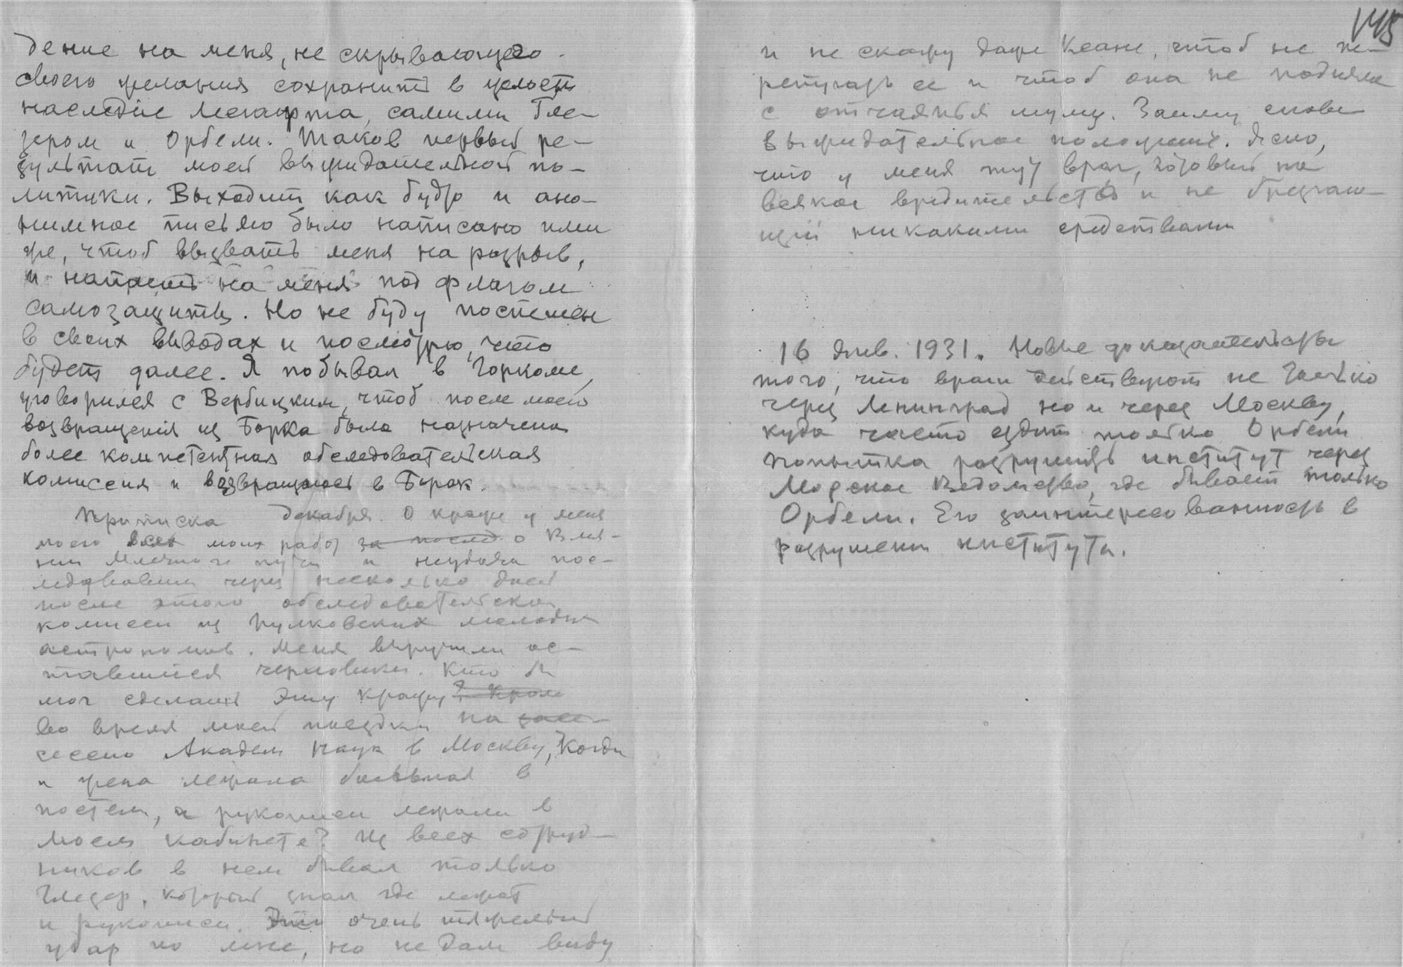 дение на меня, не скрывающего
своего желания сохранить в целости
наследие Лесгафта, самими Гле-
зером и Орбели. Таков первый ре-
зультат моей выжидательной по-
литики. Выходит как будто и ано-
нимное письмо было написано ими
же, чтоб вызвать меня на разрыв,
и напасть на меня под флагом
самозащиты. Но не буду поспешен
в своих выводах и посмотрю, что
будет далее. Я побывал в Горкоме,
уговорился с Вербицким, чтоб после моего
возвращения из Борка была назначена
более компетентная обследовательская
комиссия и возвращаюсь в Борок.
Приписка декабря. О краже у меня
моего всех моих работ за послед о Влия-
нии Млечного пути и неудача пос-
ледовавшей через несколько дней
после этого обследовательской
комисси из Пулковских молодых
астрономов. Меня выручили ос-
тавшиеся черновики. Кто бы
мог сделать эту кражу? Кроме
во время моей поездки на засе-
сессию Академ Наук в Москву, Когда
и жена лежала больная в
постели, а рукописи лежали в
моем кабинете? Из всех сотруд-
ников в нем бывал только
Глезер, который знал где лежат
и рукописи. Это очень тяжелый
удар по мне, но не дам виду
145
и не скажу даже Ксане, чтоб не пе-
репугать ее и чтоб она не подняла
с отчаянья шуму. Займу снова
выжидательное положение. Ясно,
что у меня тут враг, готовый на
всякое вредительство и не брезгаю-
щий никакими средствами
16 янв. 1931. Новые доказательства
того, что враги действуют не только
через Ленинград но и через Москву,
куда часто ездит только Орбели
попытка разрушить институт через
Морское Ведомство, где бывает только
Орбели. Его заинтересованность в
разрушении института.